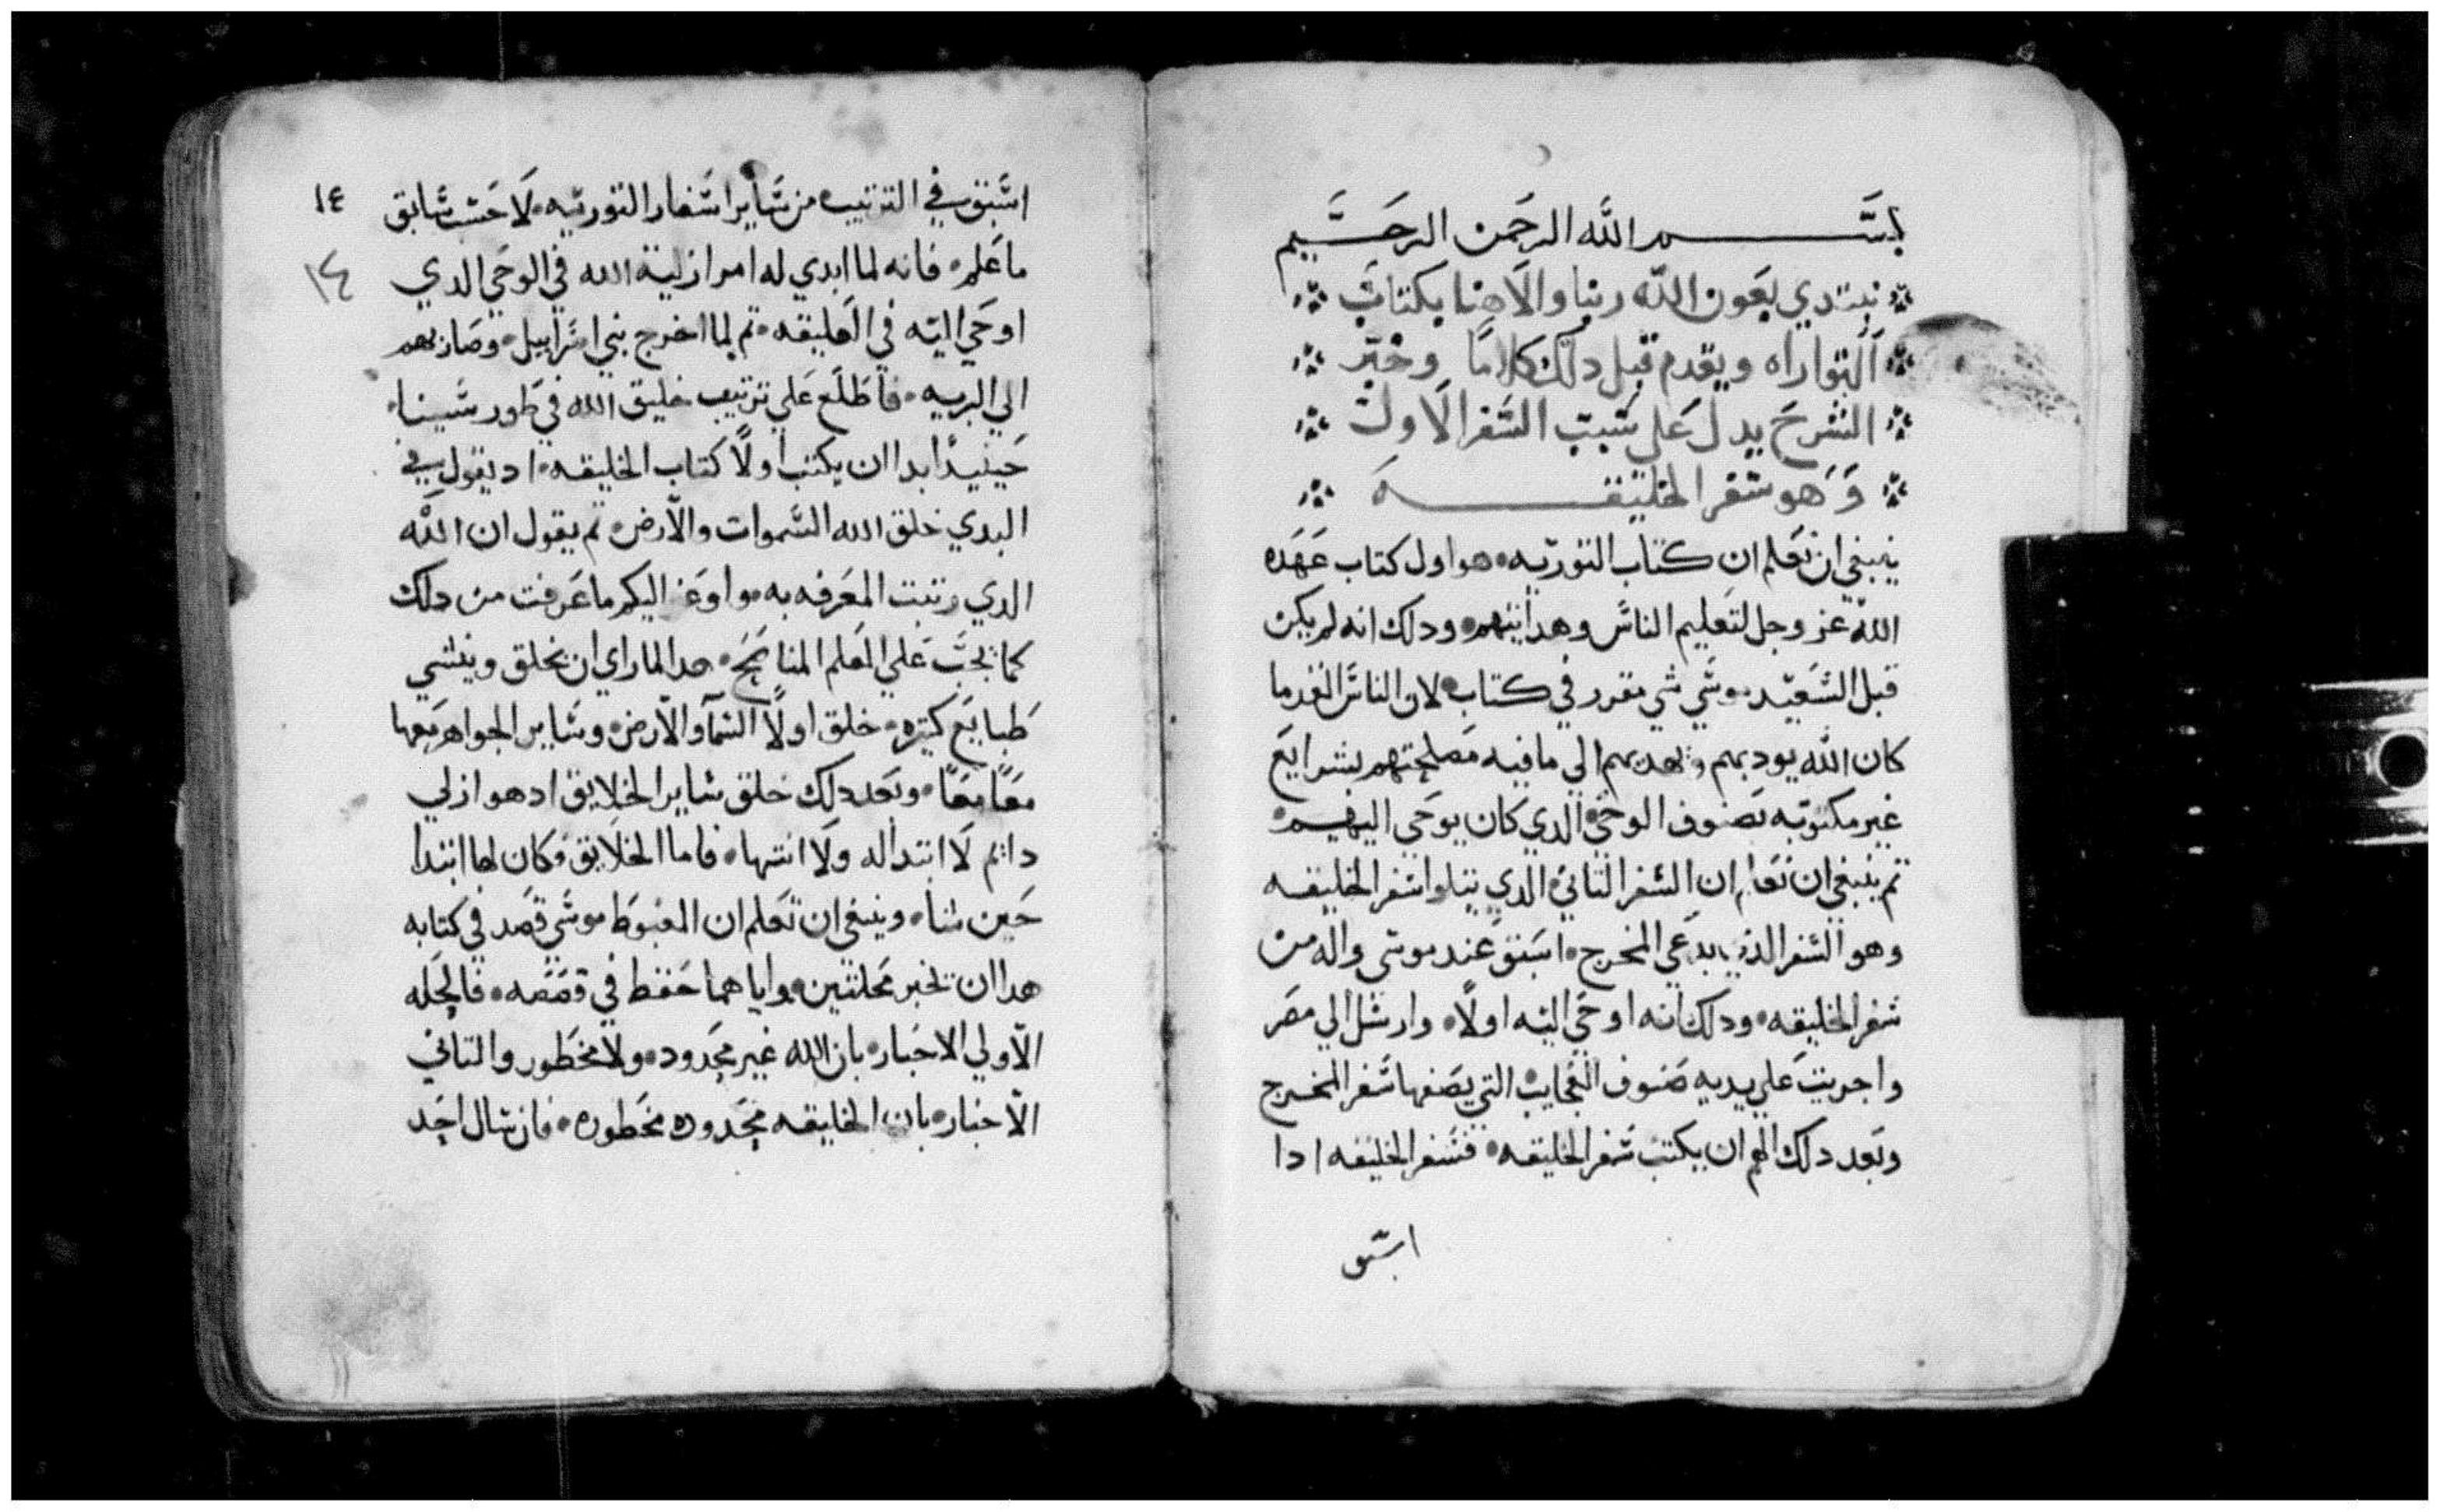 بسم الله الرحمن الرحيم
نبتدي بعون الله ربنا والاهنا بكتاب
التواراه ويقدم قبل دلك كلاما وخبر
الشرح يدل علي سبب السفر الاول
وهو سفر الخليقه
ينبغي ان نعلم ان كتاب التوريه هو اول كتاب عهده
الله عز وجل لتعليم الناس وهدايتهم ودلك انه لم يكن
قبل السعيد موسي شي مقرر في كتاب لان الناس القدما
كان الله يودبهم ويهديهم الي ما فيه مصلحتهم بشرايع
غير مكتوبه بصنوف الوحي الدي كان يوحي اليهم
تم ينبغي ان نعلم ان السفر التاني الدي يتلوا سفر الخليقه
وهو السفر الذي يدعي المخرج استبق عند موسي واله من
سفر الخليقه ودلك انه اوحي اليه اولا وارسل الي مصر
واجريت علي يديه صنوف العجايب التي يصفها سفر المخرج
وبعد دلك الهم ان يكتب سفر الخليقه فسفر الخليقه ادا
اسبق
١٤
١٤
اسبق في الترتيب من ساير اسفار التوريه لا حسب سابق
ما علم فانه لما ابدي له امر ازلية الله في الوحي الدي
اوحي اليه في العليقه تم لما اخرج بني اسراييل وصار بهم
الي البريه فاطلع علي ترتيب خليق الله في طور سينا
حينيد ابدا ان يكتب اولا كتاب الخليقه اد يقول في
البدي خلق الله السموات والارض تم يقول ان الله
الدي رتبت المعرفه به واوعز اليكم ما عرفت من دلك
كما يجب علي المعلم المناصح هدا لما راي ان يخلق وينشي
طبايع كتيره خلق اولا السما والارض وساير الجواهر معها
معا معا وبعد دلك خلق ساير الخلايق اد هو ازلي
دايم لا ابتدا له ولا انتها فاما الخلايق فكان لها ابتدا
حين شا وينبغي ان تعلم ان المغبوط موسي قصد في كتابه
هدا ان يخبر بخلتين واياهما حفظ في قصصه فالخله
الاولي الاخبار بان الله غير محدود ولا محظور والتاني
الاخبار بان الخليقه محدوده محظوره فان سال احد